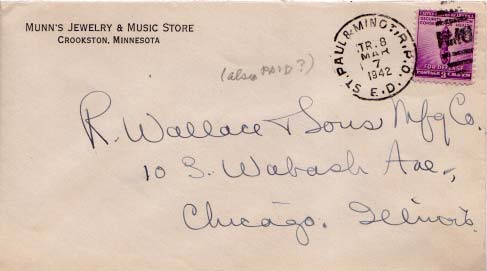 MUNN'S JEWELRY & MUSIC STORE
CROOKSTON, MINNESOTA
(also PAID?)
ST. PAUL & MINOT. R.P.O.
TR. 8
MAR
7
1942
E.D.
FOR DEFENSE
R. Wallace & Sons Mfg Co.
10 S. Wabash Ave.,
Chicago. Illinois.